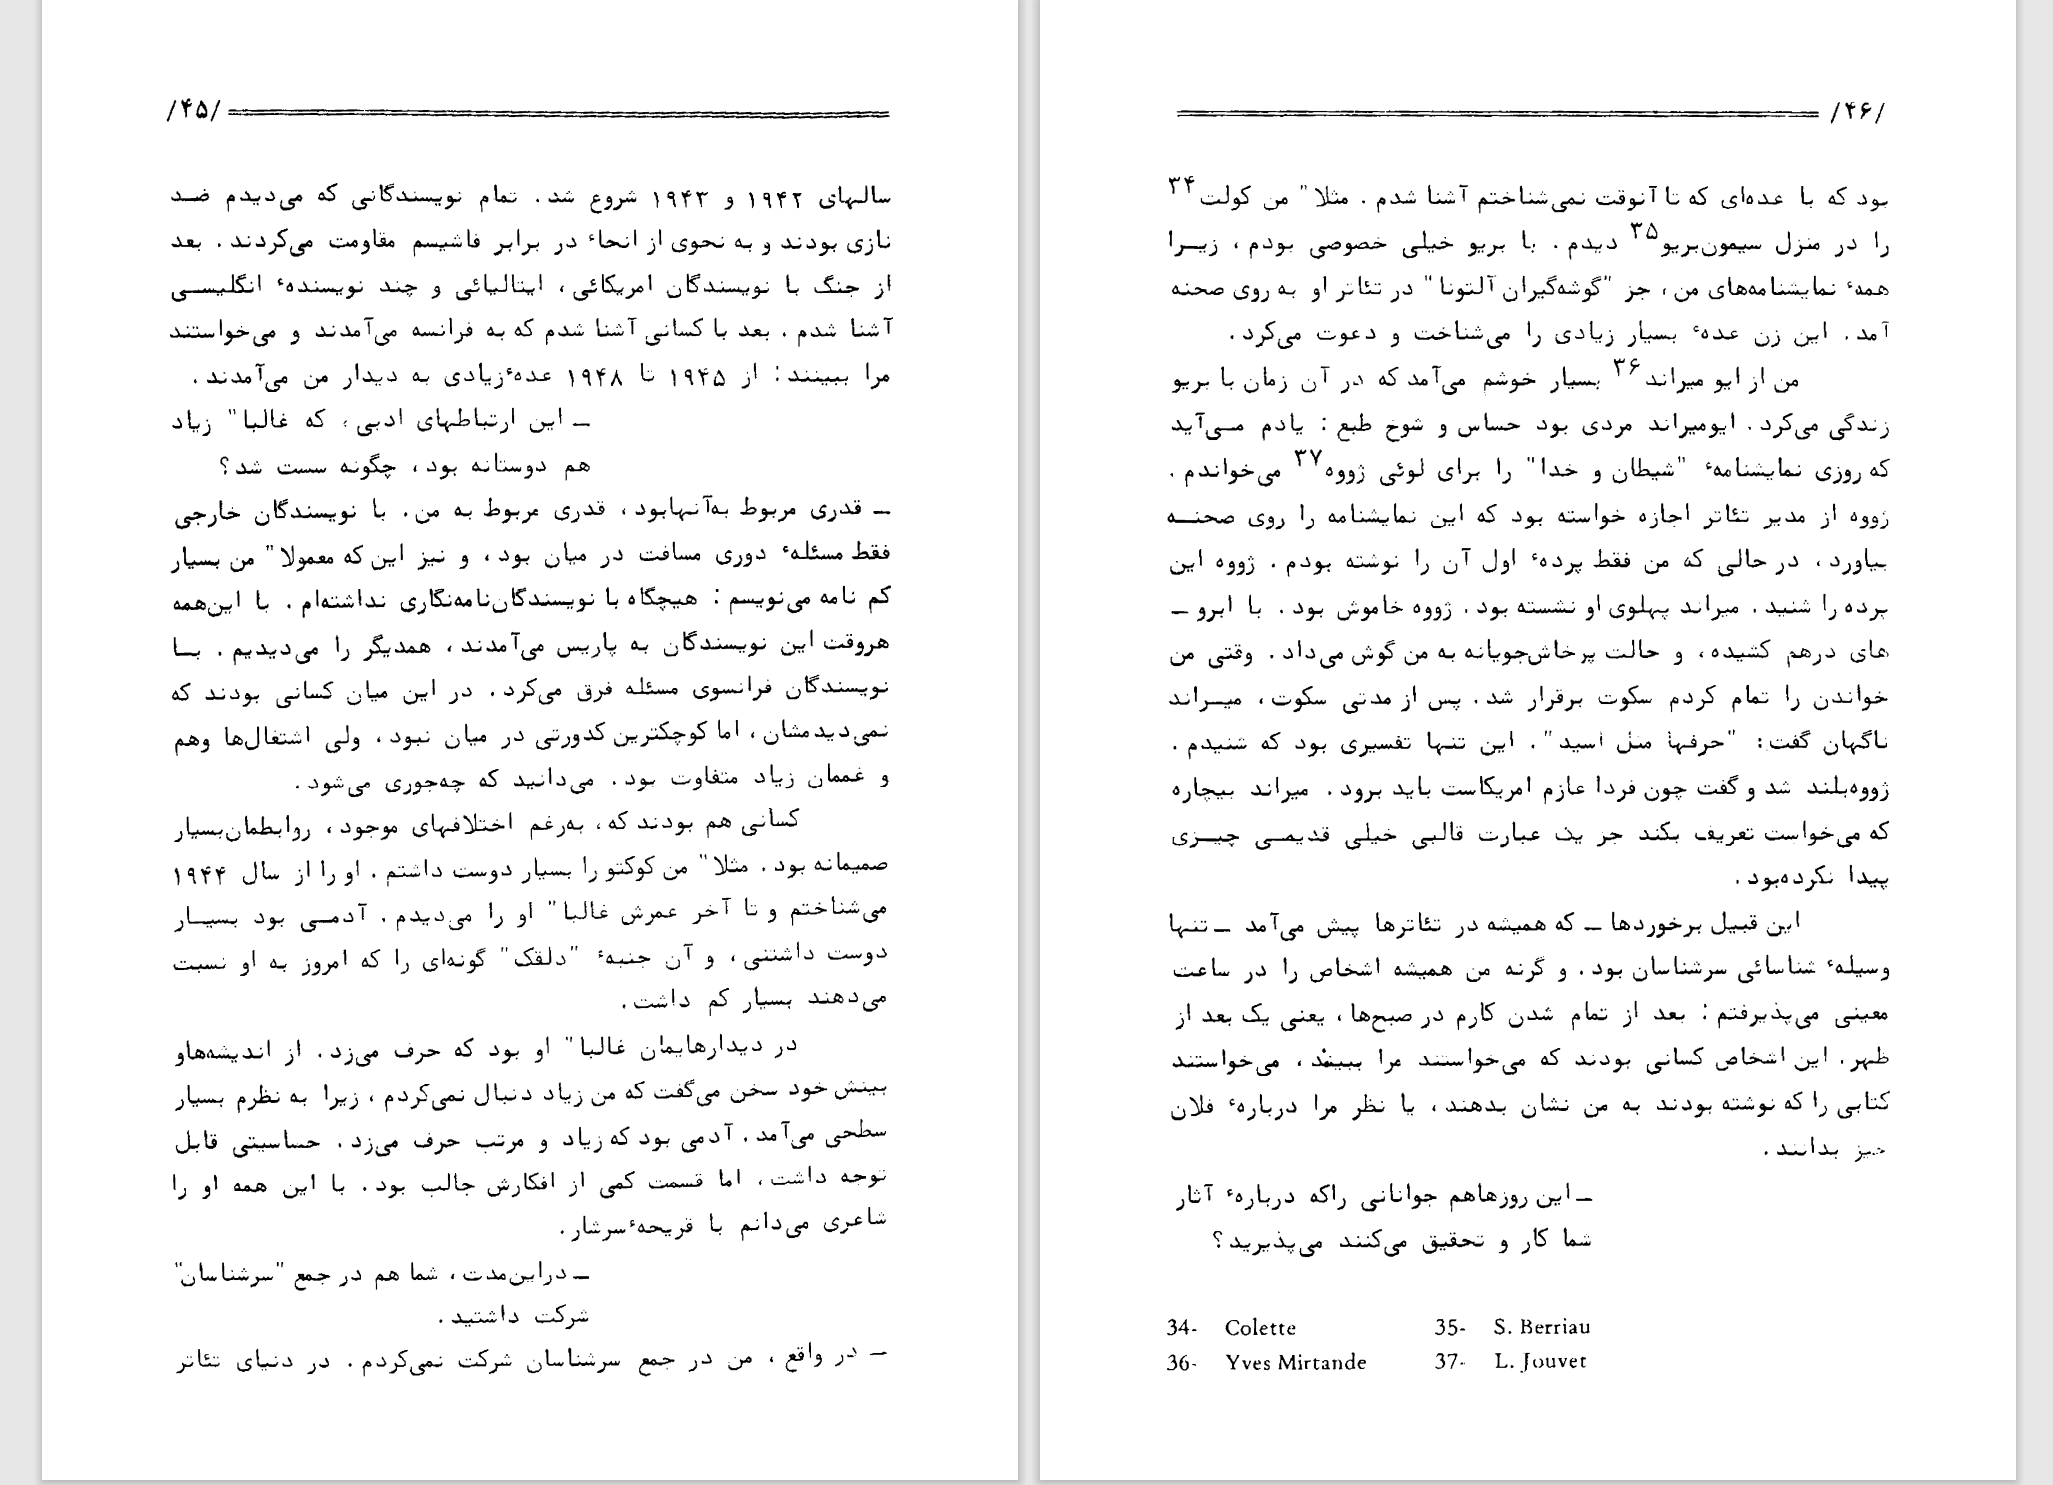 /۴۵/
سالهای ۱۹۴۲ و ۱۹۴۳ شروع شد. تمام نویسندگانی که می‌دیدم ضد
نازی بودند و به نحوی از انحاء در برابر فاشیسم مقاومت می‌کردند. بعد
از جنگ با نویسندگان امریکائی، ایتالیائی و چند نویسندهٔ انگلیسی
آشنا شدم. بعد با کسانی آشنا شدم که به فرانسه می‌آمدند و می‌خواستند
مرا ببینند: از ۱۹۴۵ تا ۱۹۴۸ عدهٔ زیادی به دیدار من می‌آمدند.
ــ این ارتباطهای ادبی، که غالبا" زیاد
هم دوستانه بود، چگونه سست شد؟
ــ قدری مربوط به‌آنهابود، قدری مربوط به من. با نویسندگان خارجی
فقط مسئلهٔ دوری مسافت در میان بود، و نیز این که معمولا" من بسیار
کم نامه می‌نویسم: هیچگاه با نویسندگان‌نامه‌نگاری نداشته‌ام. با این‌همه
هروقت این نویسندگان به پاریس می‌آمدند، همدیگر را می‌دیدیم. با
نویسندگان فرانسوی مسئله فرق می‌کرد. در این میان کسانی بودند که
نمی‌دیدمشان، اما کوچکترین کدورتی در میان نبود، ولی اشتغال‌ها وهم
و غممان زیاد متفاوت بود. می‌دانید که چه‌جوری می‌شود.
کسانی هم بودند که، به‌رغم اختلافهای موجود، روابطمان‌بسیار
صمیمانه بود. مثلا" من کوکتو را بسیار دوست داشتم. او را از سال ۱۹۴۴
می‌شناختم و تا آخر عمرش غالبا" او را می‌دیدم. آدمی بود بسیار
دوست داشتنی، و آن جنبهٔ "دلقک" گونه‌ای را که امروز به او نسبت
می‌دهند بسیار کم داشت.
در دیدارهایمان غالبا" او بود که حرف می‌زد. از اندیشه‌هاو
بینش خود سخن می‌گفت که من زیاد دنبال نمی‌کردم، زیرا به نظرم بسیار
سطحی می‌آمد. آدمی بود که زیاد و مرتب حرف می‌زد. حساسیتی قابل
توجه داشت، اما قسمت کمی از افکارش جالب بود. با این همه او را
شاعری می‌دانم با قریحهٔ سرشار.
ــ دراین‌مدت، شما هم در جمع "سرشناسان"
شرکت داشتید.
ــ در واقع، من در جمع سرشناسان شرکت نمی‌کردم. در دنیای تئاتر
/۴۶/
بود که با عده‌ای که تا آنوقت نمی‌شناختم آشنا شدم. مثلا" من کولت۳۴
را در منزل سیمون‌بریو۳۵ دیدم. با بریو خیلی خصوصی بودم، زیرا
همهٔ نمایشنامه‌های من، جز "گوشه‌گیران آلتونا" در تئاتر او به روی صحنه
آمد. این زن عدهٔ بسیار زیادی را می‌شناخت و دعوت می‌کرد.
من از ایو میراند۳۶ بسیار خوشم می‌آمد که در آن زمان با بریو
زندگی می‌کرد. ایومیراند مردی بود حساس و شوخ طبع: یادم می‌آید
که روزی نمایشنامهٔ "شیطان و خدا" را برای لوئی ژووه۳۷ می‌خواندم.
ژووه از مدیر تئاتر اجازه خواسته بود که این نمایشنامه را روی صحنه
بیاورد، در حالی که من فقط پردهٔ اول آن را نوشته بودم. ژووه این
پرده را شنید. میراند پهلوی او نشسته بود. ژووه خاموش بود. با ابرو ــ
های درهم کشیده، و حالت پرخاش‌جویانه به من گوش می‌داد. وقتی من
خواندن را تمام کردم سکوت برقرار شد. پس از مدتی سکوت، میراند
ناگهان گفت: "حرفها مثل اسید". این تنها تفسیری بود که شنیدم.
ژووه‌بلند شد و گفت چون فردا عازم امریکاست باید برود. میراند بیچاره
که می‌خواست تعریف بکند جز یک عبارت قالبی خیلی قدیمی چیزی
پیدا نکرده‌بود.
این قبیل برخوردها ــ که همیشه در تئاترها پیش می‌آمد ــ تنها
وسیلهٔ شناسائی سرشناسان بود. و گرنه من همیشه اشخاص را در ساعت
معینی می‌پذیرفتم: بعد از تمام شدن کارم در صبح‌ها، یعنی یک بعد از
ظهر. این اشخاص کسانی بودند که می‌خواستند مرا ببینند، می‌خواستند
کتابی را که نوشته بودند به من نشان بدهند، یا نظر مرا دربارهٔ فلان
چیز بدانند.
ــ این روزهاهم جوانانی راکه دربارهٔ آثار
شما کار و تحقیق می‌کنند می‌پذیرید؟
34- Colette 35- S. Berriau
36- Yves Mirtande 37- L. Jouvet